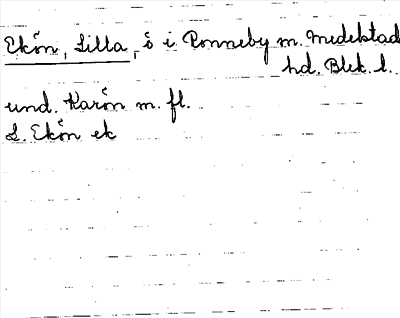 Ekön, Lilla, ö i Ronneby m. Medelstad
hd. Blek. l.
und. Karön m. fl.
L. Ekön ek